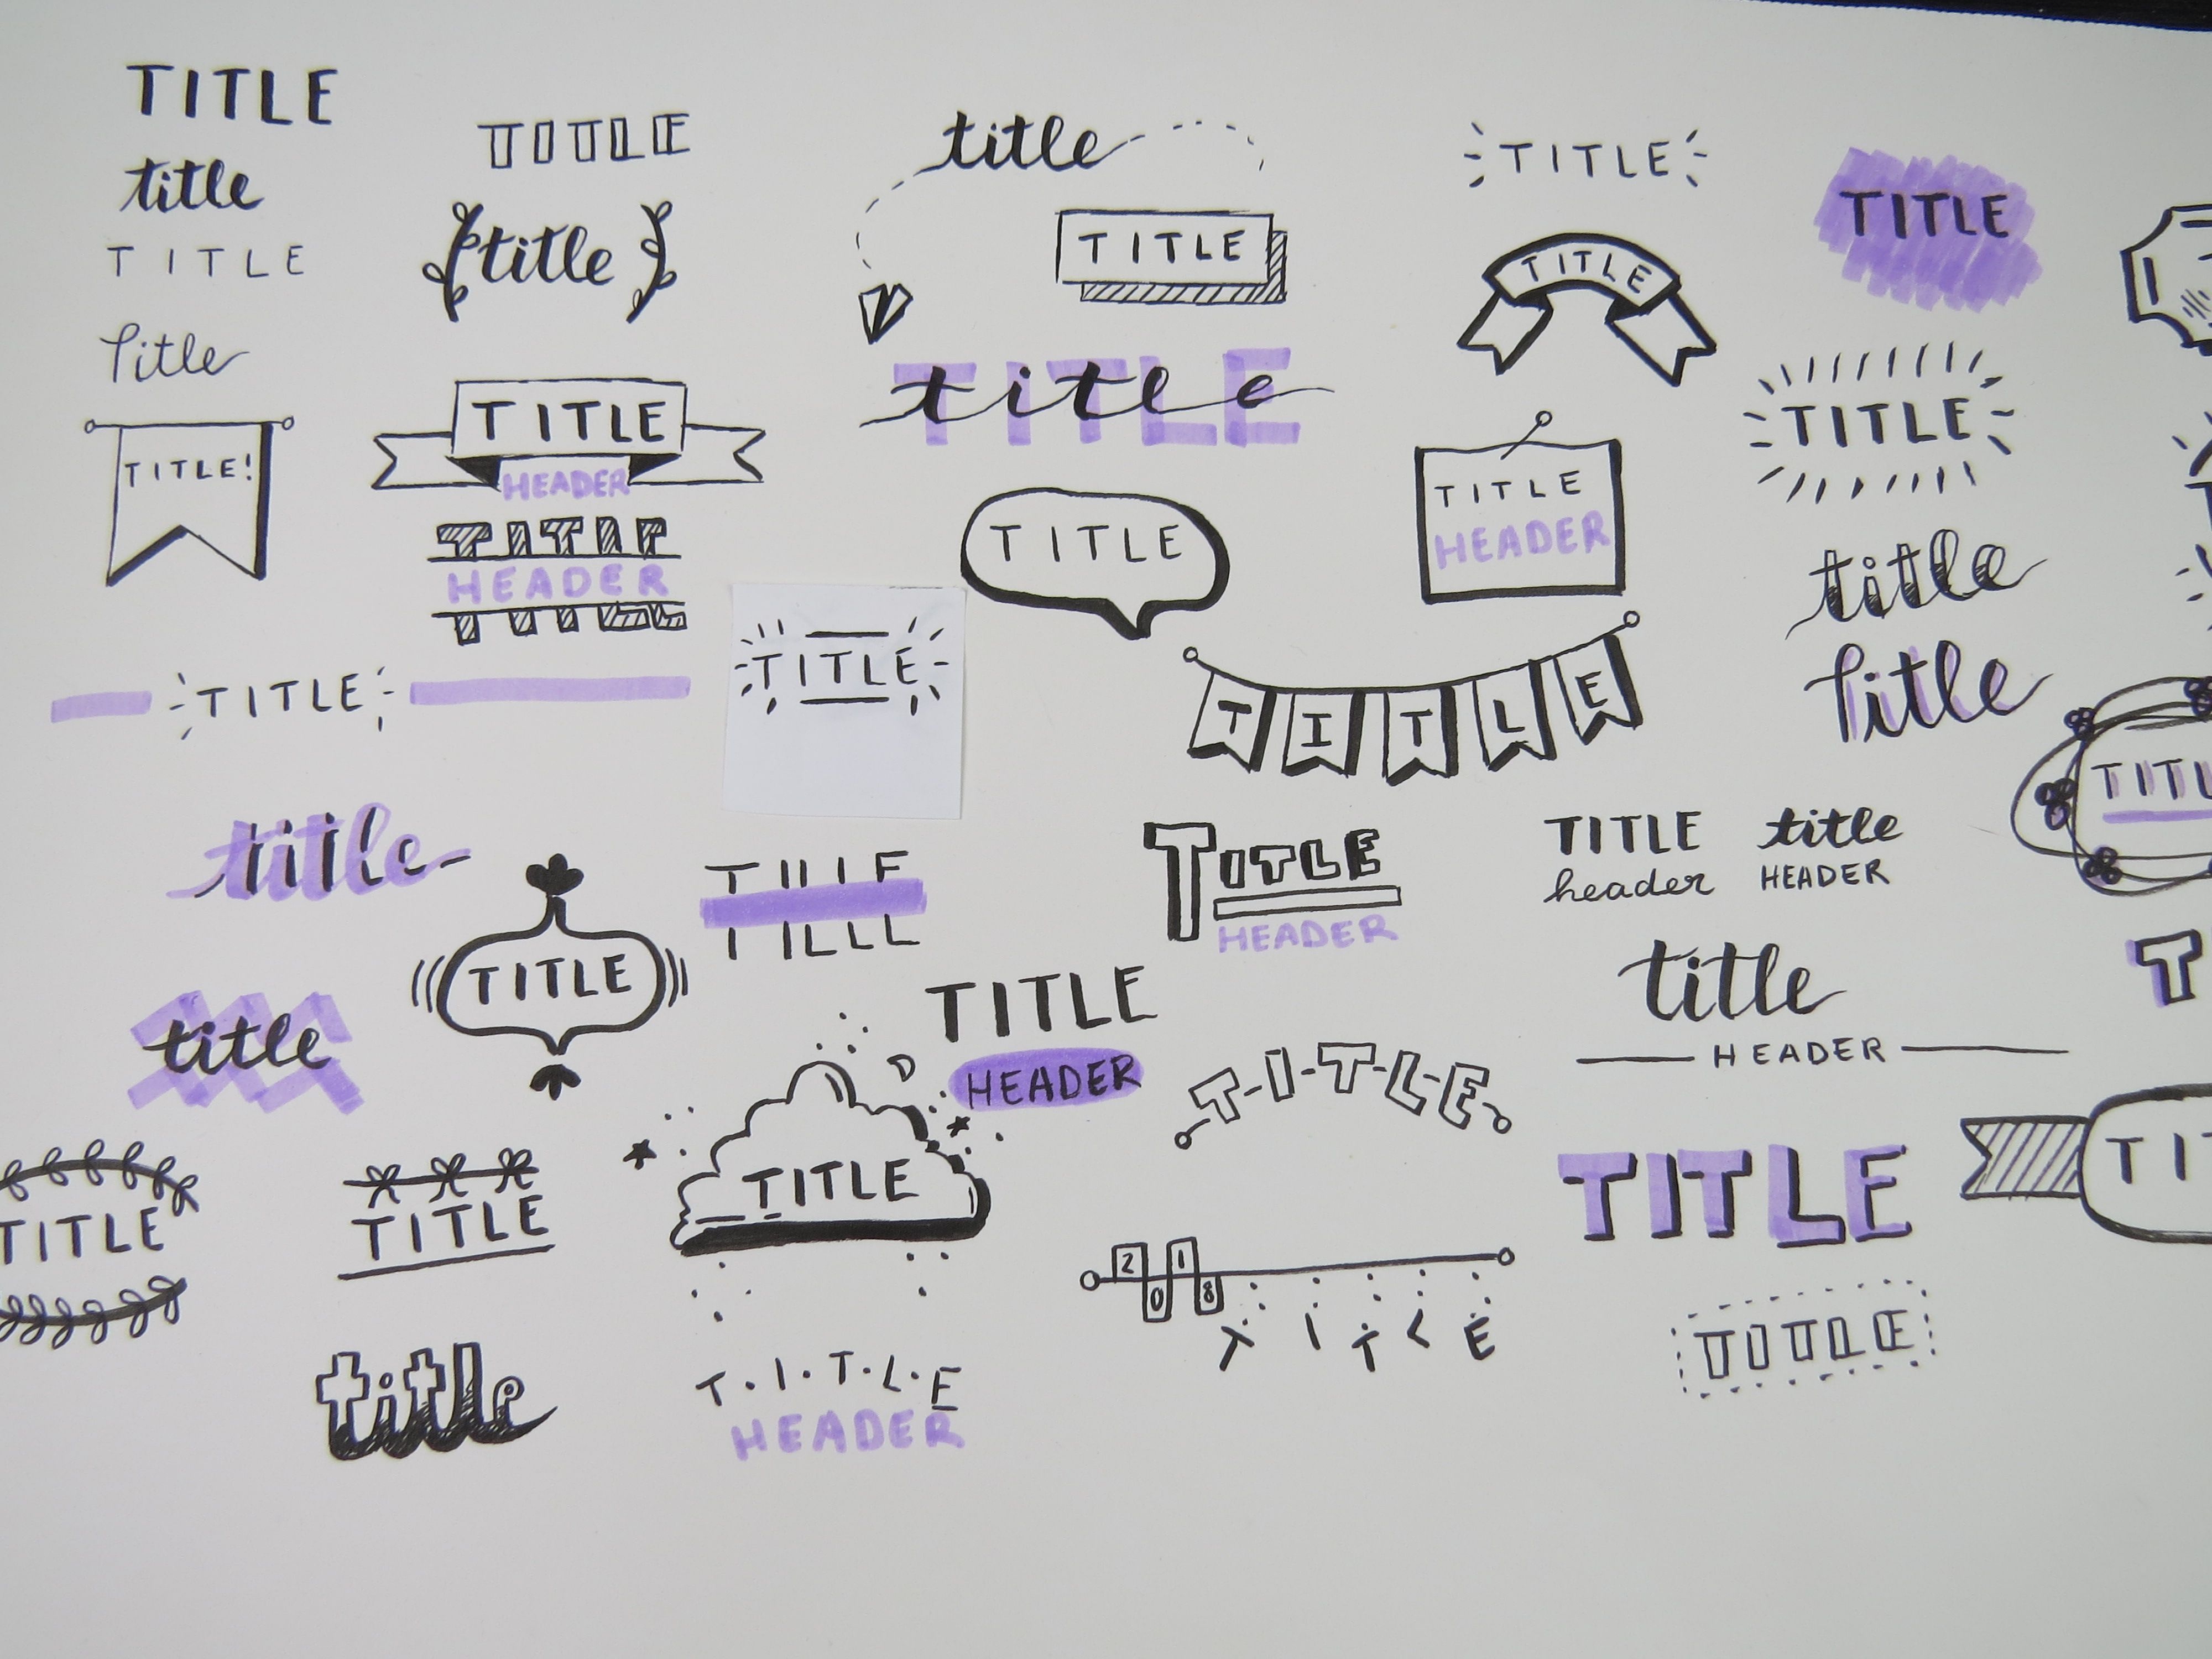 TITLE
title
TITLE
title
TITLE!
TITLE
title
TITLE
HEADER
HEADER
TITLE
title
title
TITLE
title
TITLE
TITLE
title
TITLE
TITLE
TITLE
HEADER
TITLE
TITLE
TITLE
TITLE
TITLE
HEADER
TITLE
TITLE
TITLE
title
title
TITLE
header
title
HEADER
title
HEADER
TITLE
TITLE
TITLE
TITLE
title
TITLE
TITLE
HEADER
TITLE
T·I·T·L·E
HEADER
T-I-T-L-E
2018
TITLE
TITLE
TITLE